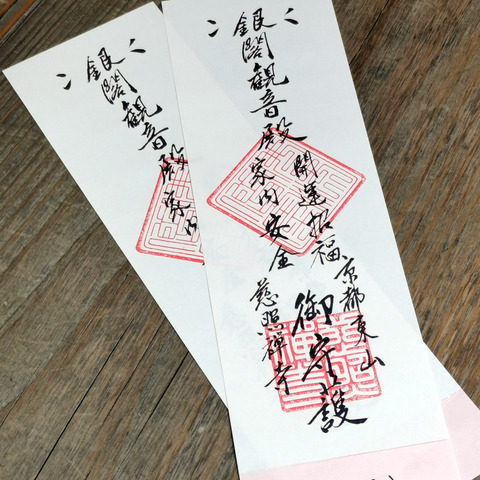 銀閣觀音殿
開運招福
京都東山
御守護
家内安全
慈照禅寺
銀閣觀音殿
家内